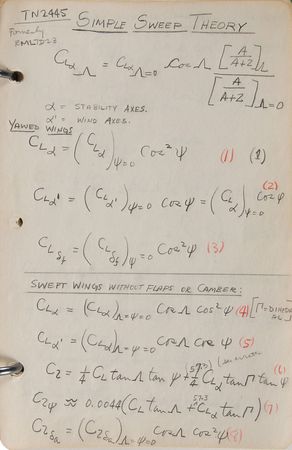 TN2445 SIMPLE SWEEP THEORY
Formerly
C_{Lα_Λ} = C_{Lα_{Λ=0}} cos Λ [A/(A+2)]_Λ / [A/(A+2)]_{Λ=0}
α = STABILITY AXES.
α' = WIND AXES.
YAWED WINGS
C_{Lα} = (C_{Lα})_{ψ=0} cos²ψ (1) (1)
C_{Lα'} = (C_{Lα'})_{ψ=0} cos ψ = (C_{Lα})_{ψ=0} cos ψ (2)
C_{Lδf} = (C_{Lδf})_{ψ=0} cos²ψ (3)
SWEPT WINGS WITHOUT FLAPS OR CAMBER:
C_{Lα} = (C_{Lα})_{Λ=ψ=0} cos Λ cos²ψ (4) [Γ=
C_{Lα'} = (C_{Lα'})_{Λ=ψ=0} cos Λ cos ψ (5)
C_l = ¼ C_L tan Λ tan ψ + ¼ (57.3) C_{Lα} tan Γ tan ψ (6)
C_{lψ} ≈ 0.0044 (C_L tan Λ + 57.3 C_{Lα} tan Γ) (7)
C_{lδa} = (C_{lδa})_{Λ=ψ=0} cos Λ cos²ψ (8)